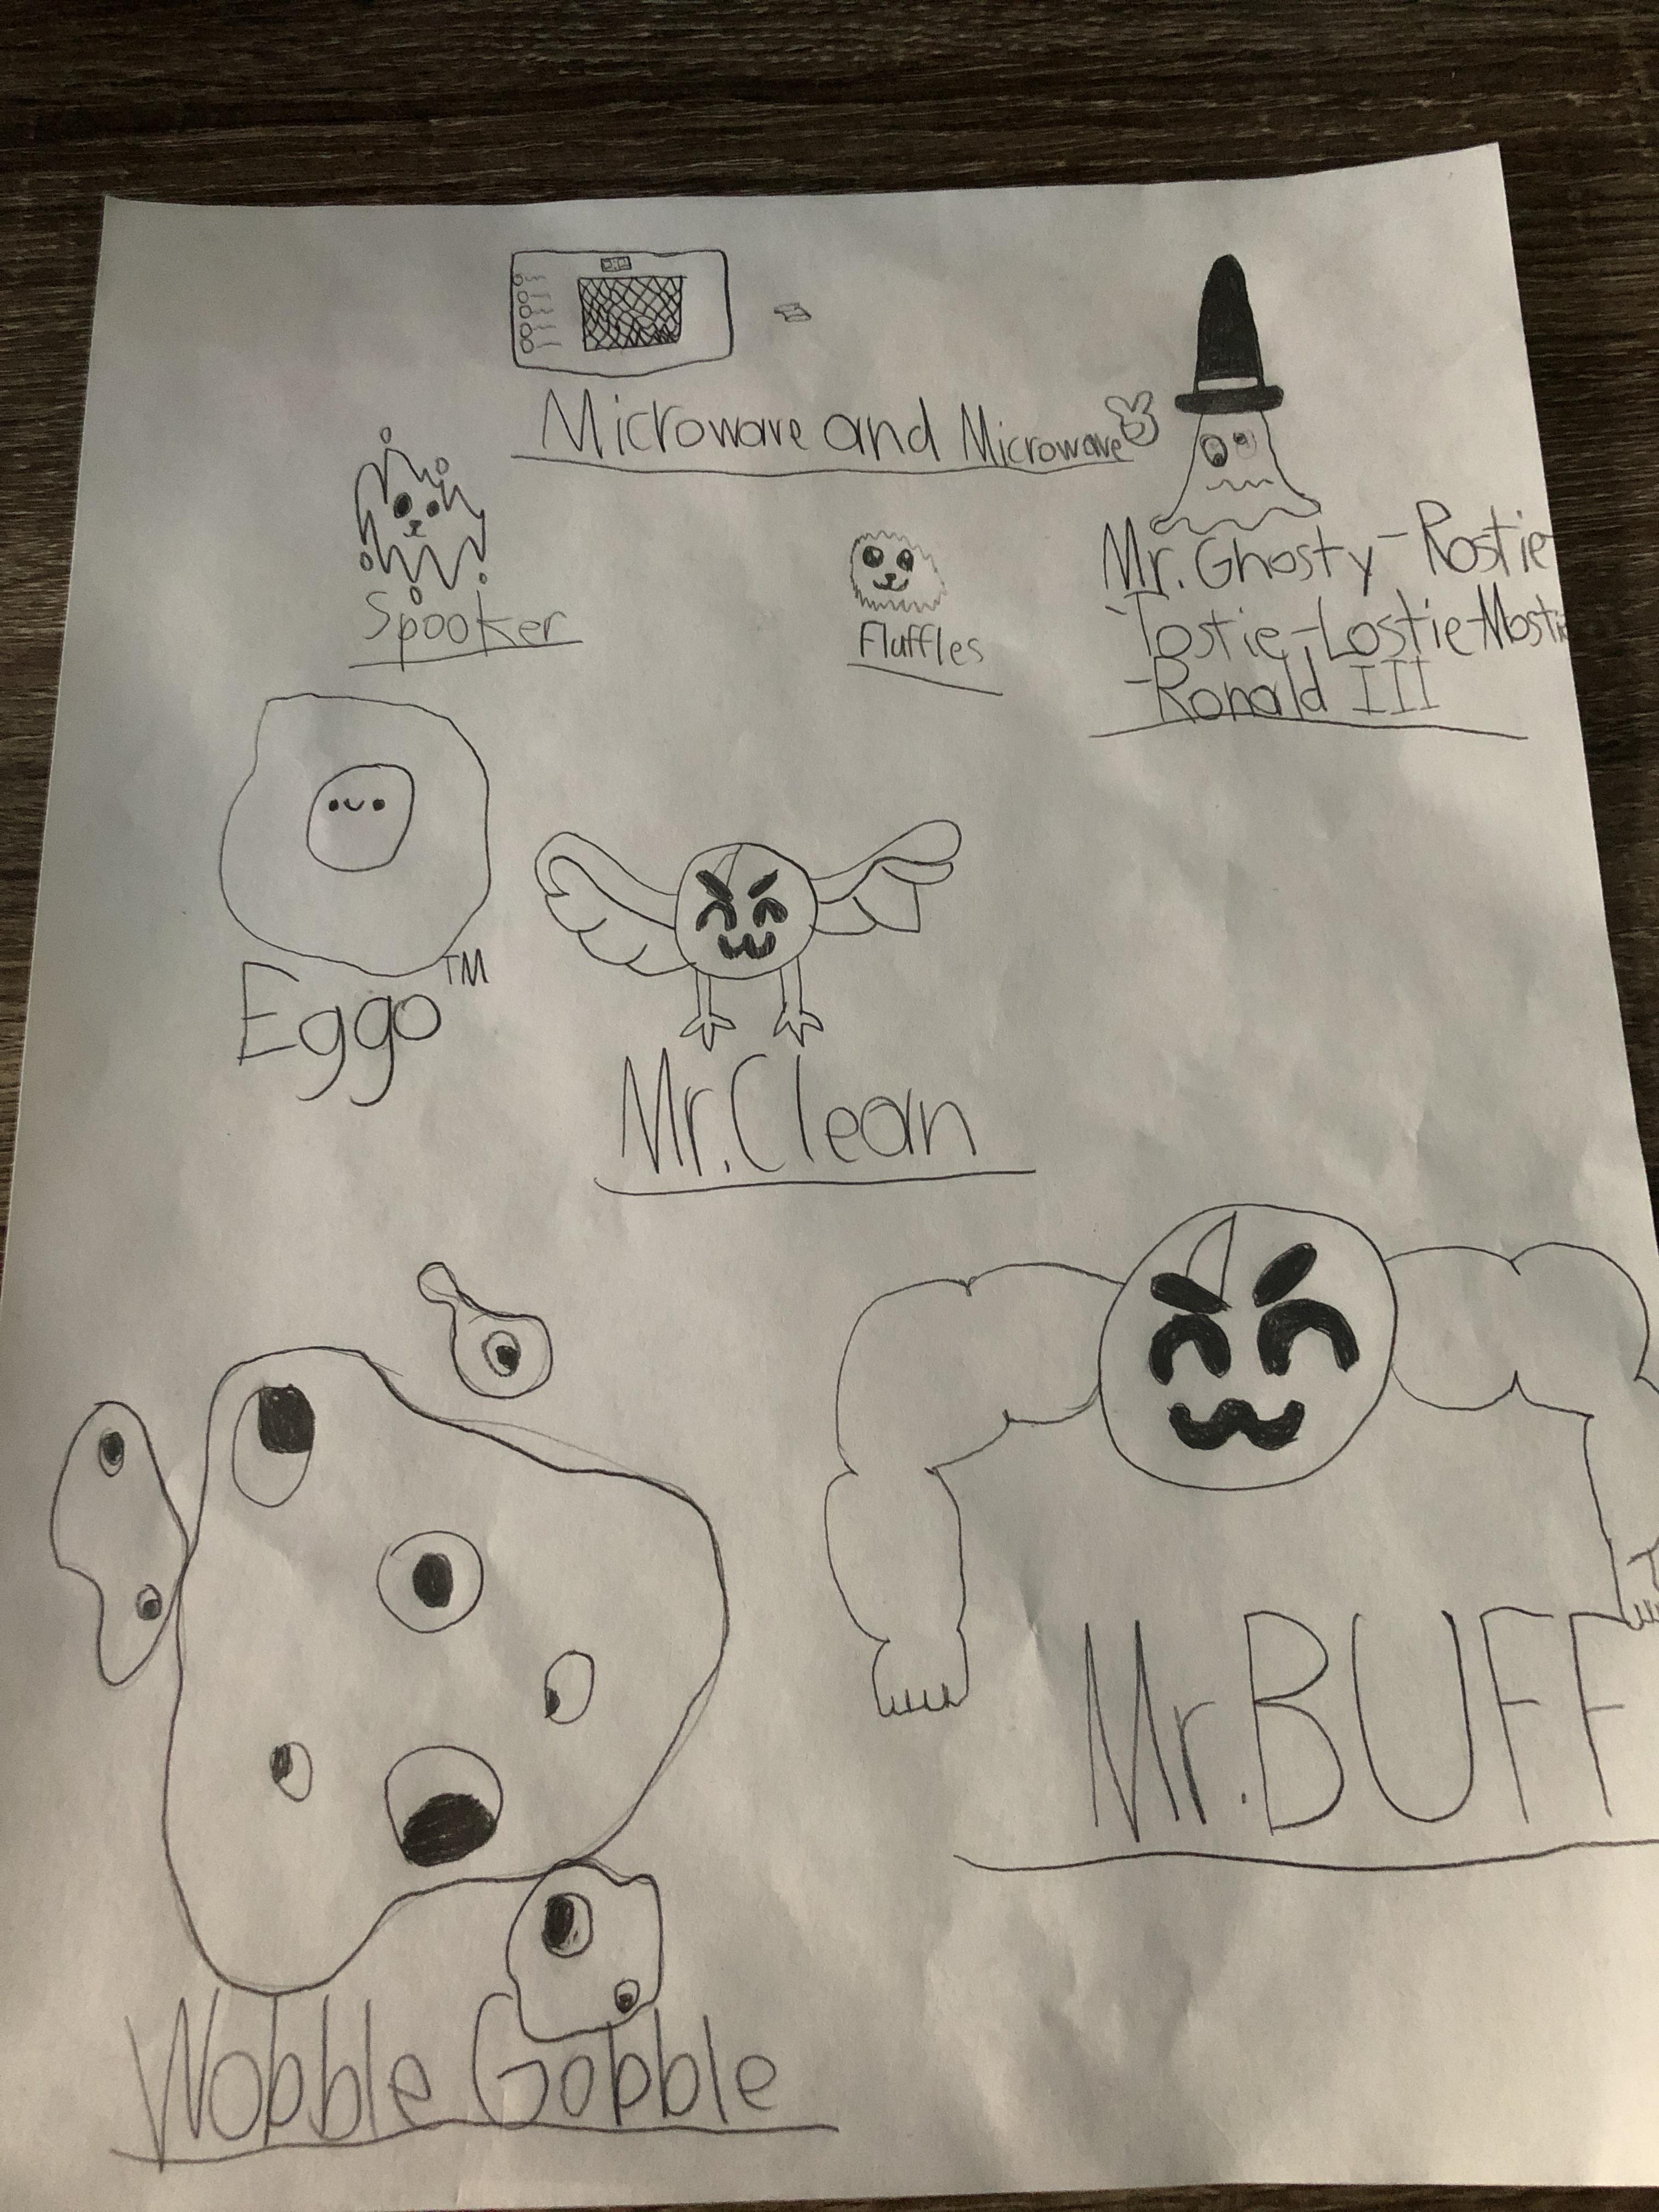 Microwave and Microwave
Spooker
Fluffles
Mr. Ghosty-Rostie
-Tostie-Lostie-Mostie
-Ronald III
Eggo™
Mr. Clean
Mr. BUFF
Wobble Gobble